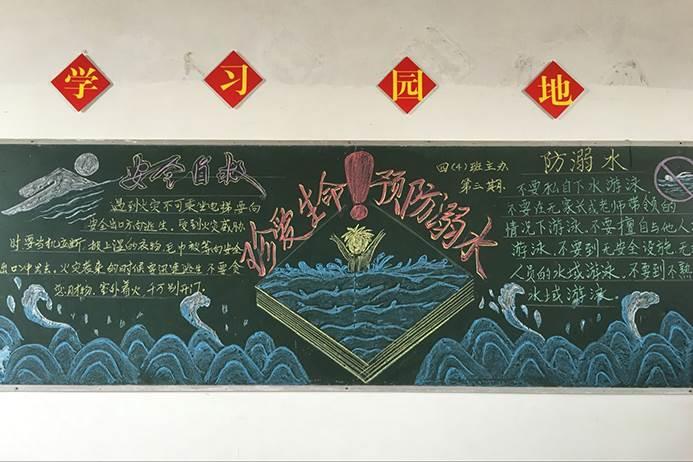 学习园地
安全自救
遇到火灾不可乘坐电梯要向
安全出口方向逃生，受到火灾威胁
时要当机立断披上湿的衣物毛巾被等向安全
出口冲去。火灾袭来的时候要迅速逃生不要贪
恋财物，室外着火，千万别开门。
珍爱生命！预防溺水
四（4）班主办
第二期
防溺水
不要私自下水游泳，
不要在无家长或老师带领的
情况下游泳，不要擅自与他人
游泳，不要到无安全设施，无
人员的水域游泳，不要到不熟
水域游泳。